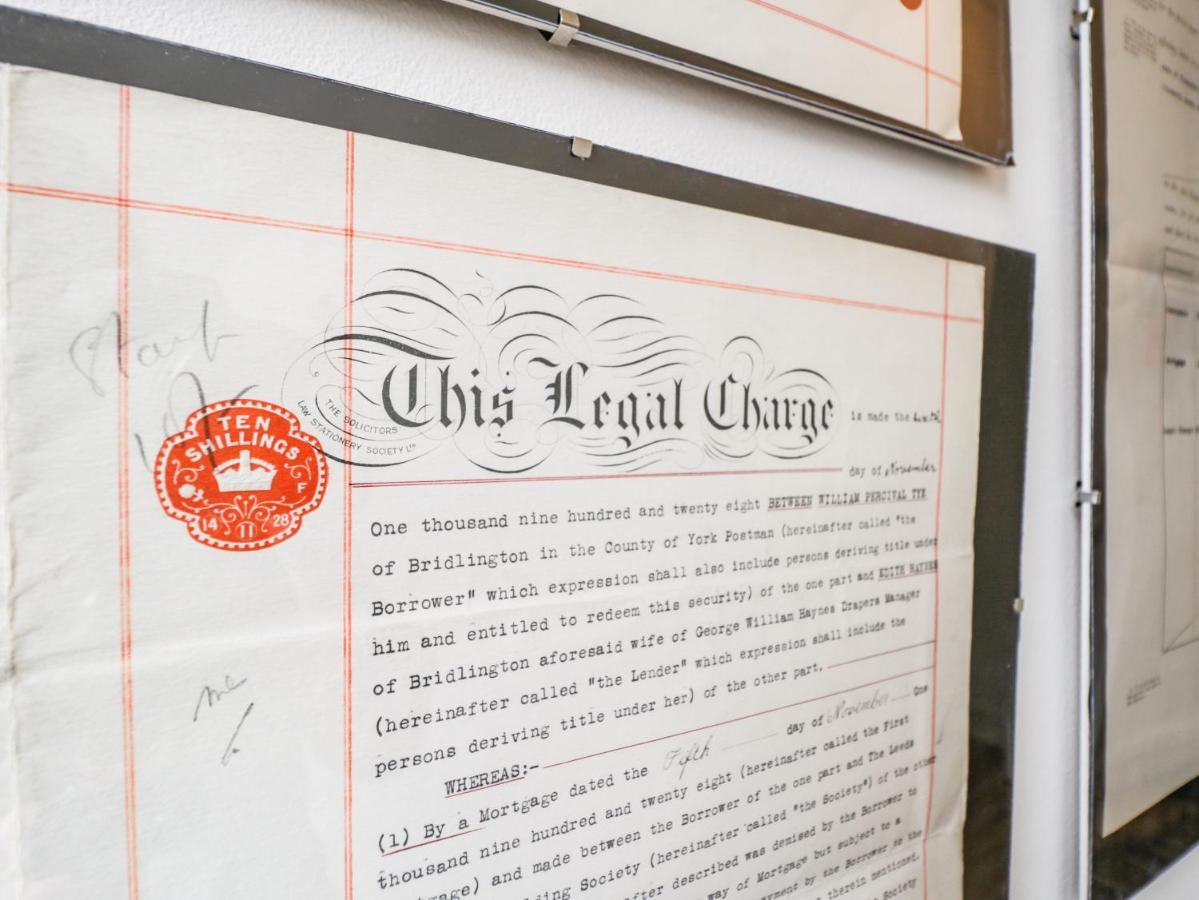 Stamp
10/-
TEN
SHILLINGS
F
14 11 28
THE SOLICITORS
LAW STATIONERY SOCIETY Ltd
This Legal Charge is made the
day of November
One thousand nine hundred and twenty eight BETWEEN WILLIAM PERCIVAL TYE
of Bridlington in the County of York Postman (hereinafter called "the
Borrower" which expression shall also include persons deriving title under
him and entitled to redeem this security) of the one part and EDITH HAYNES
of Bridlington aforesaid wife of George William Haynes Drapers Manager
(hereinafter called "the Lender" which expression shall include the
persons deriving title under her) of the other part.
WHEREAS:-
(1) By a Mortgage dated the Fifth day of November One
thousand nine hundred and twenty eight (hereinafter called the First
gage) and made between the Borrower of the one part and The Leeds
ding Society (hereinafter called "the Society") of the other
after described was demised by the Borrower to
way of Mortgage but subject to a
payment by the Borrower to the
therein mentioned.
Society